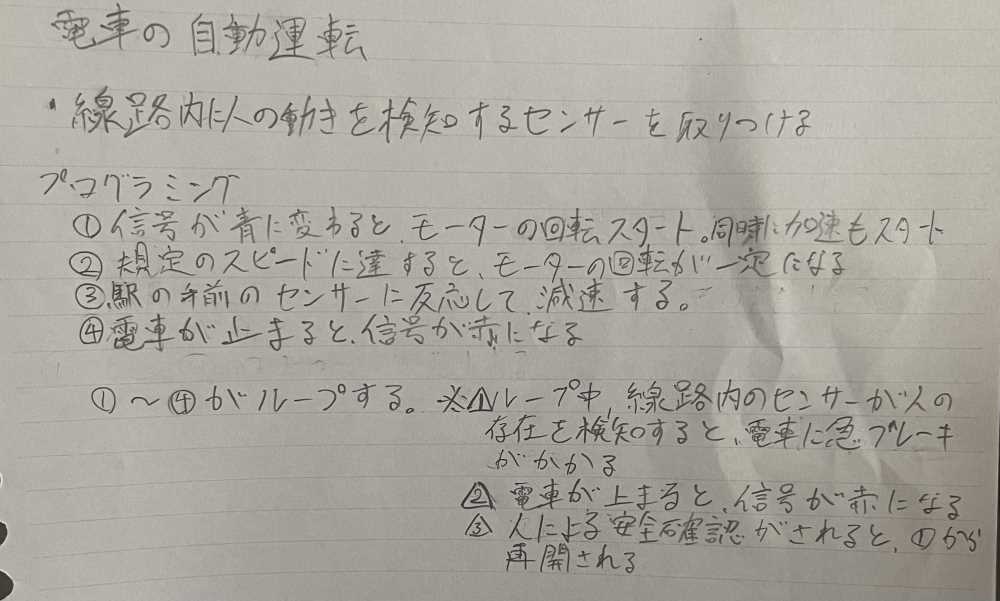 電車の自動運転
・線路内に人の動きを検知するセンサーを取りつける
プログラミング
①信号が青に変わると、モーターの回転スタート。同時に加速もスタート
②規定のスピードに達すると、モーターの回転が一定になる
③駅の手前のセンサーに反応して、減速する。
④電車が止まると、信号が赤になる
①〜④がループする。※⚠1ループ中、線路内のセンサーが人の
存在を検知すると、電車に急ブレーキ
がかかる
△2 電車が止まると、信号が赤になる
△3 人による安全確認がされると、①から
再開される